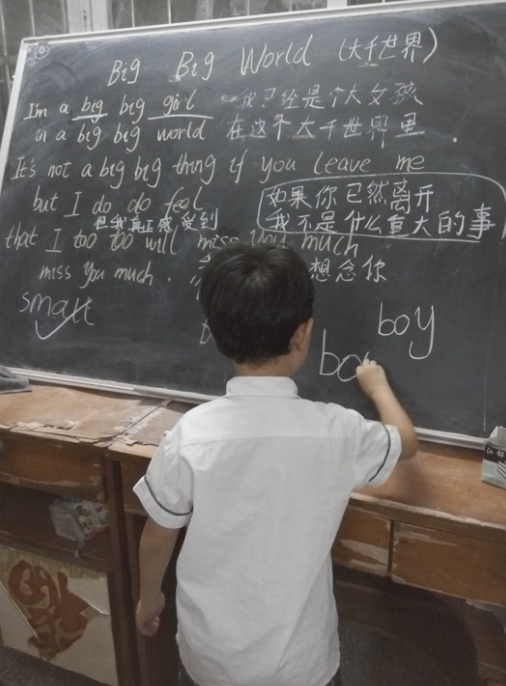 Big Big World (大千世界)
I'm a big big girl 我已经是个大女孩
in a big big world 在这个大千世界里.
It's not a big big thing if you leave me
but I do do feel 如果你已然离开
但我真正感受到 我不是什么重大的事
that I too too will miss you much
miss you much. 想念你
small
boy
bo